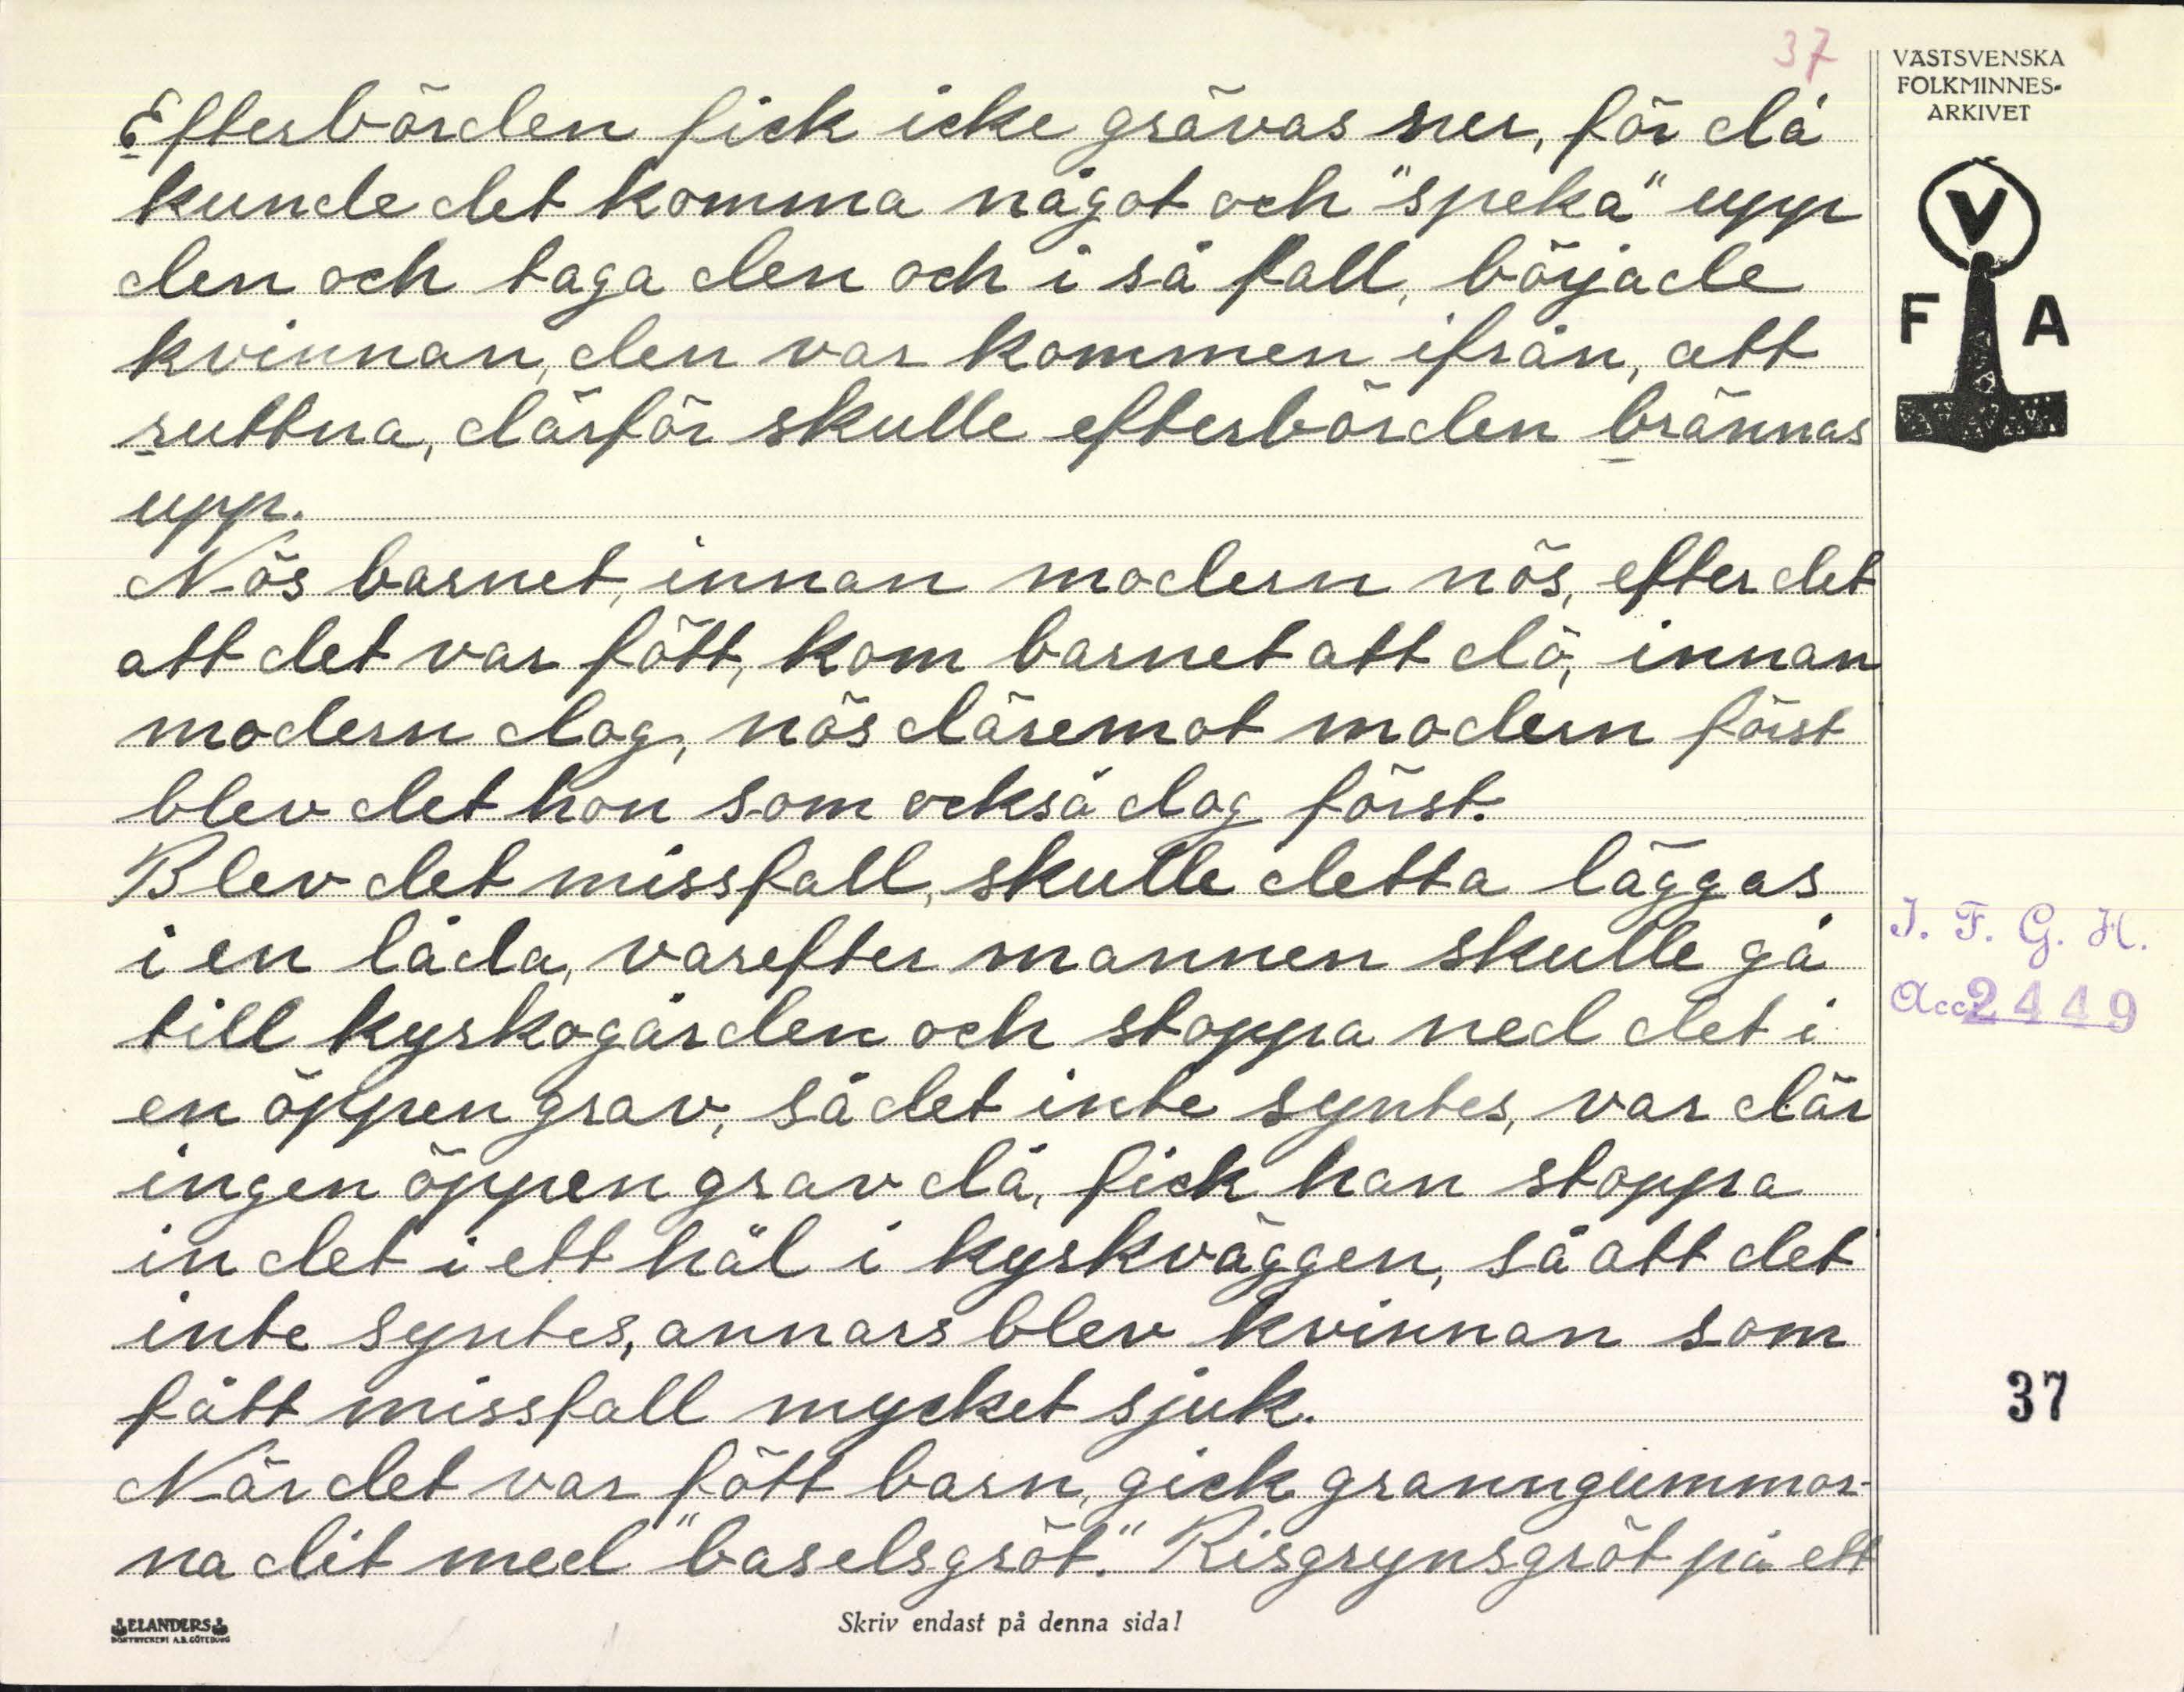 37
VÄSTSVENSKA
FOLKMINNES-
ARKIVET
V
F A
Efterbörden fick icke grävas ner, för då
kunde det komma något och "speka" upp
den och taga den och i så fall, började
kvinnan, den var kommen ifrån, att
ruttna, därför skulle efterbörden brännas
upp.
Nös barnet, innan modern nös, efter det
att det var fött, kom barnet att dö, innan
modern dog, nös däremot modern först
blev det hon som också dog först.
Blev det missfall, skulle detta läggas
i en låda, varefter mannen skulle gå
till kyrkogården och stoppa ned det i
en öppen grav, så det inte syntes, var där
ingen öppen grav då, fick han stoppa
in det i ett hål i kyrkväggen, så att det
inte syntes, annars blev kvinnan som
fått missfall mycket sjuk.
När det var fött barn, gick granngummor-
na dit med "baselsgröt." Risgrynsgröt på ett
I. F. G. H.
Acc 2449
37
ELANDERS
BOKTRYCKERI A.B. GÖTEBORG
Skriv endast på denna sida!